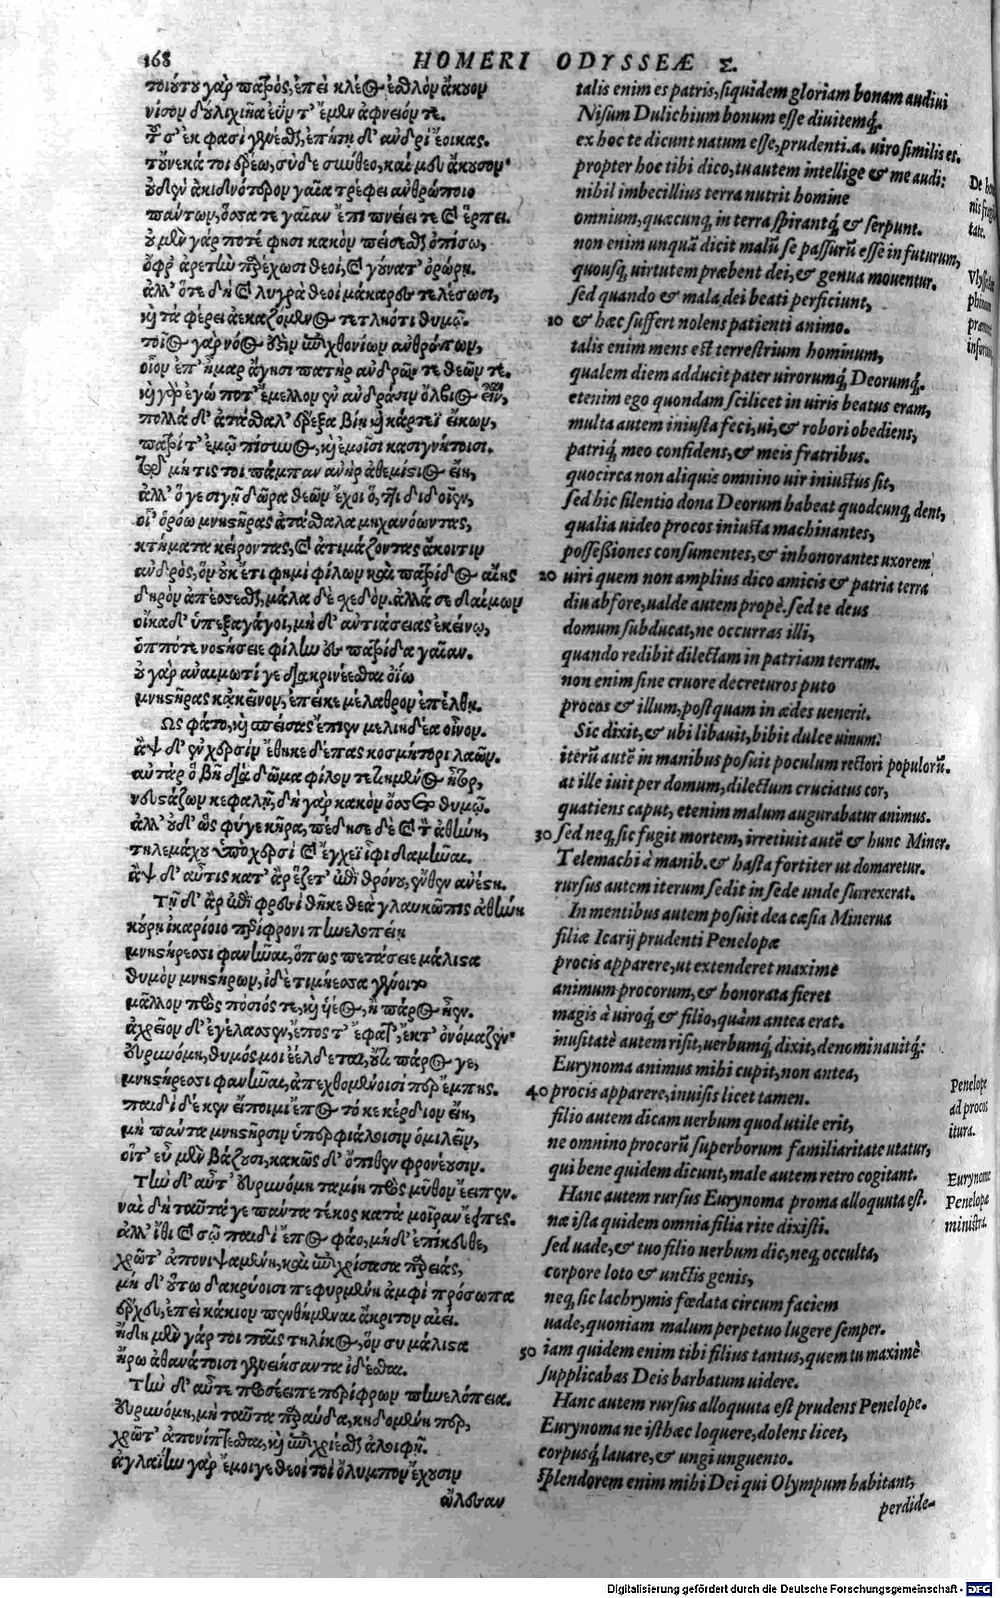 168
HOMERI ODYSSEÆ Σ.
τοιούτου γὰρ πατρὸς, ἐπεὶ κλέος ἐσθλὸν ἄκουον
νίσον δουλιχιῆα ἐΰν τ' ἔμεν ἀφνειόν τε.
τοῦ σ' ἐκ φασὶ γενέσθαι, ἐπητῇ δ' ἀνδρὶ ἔοικας.
τούνεκά τοι ἐρέω, σὺ δὲ σύνθεο, καί μευ ἄκουσον·
οὐδὲν ἀκιδνότερον γαῖα τρέφει ἀνθρώποιο
πάντων, ὅσσα τε γαῖαν ἔπι πνείει τε καὶ ἕρπει.
οὐ μὲν γάρ ποτέ φησι κακὸν πείσεσθαι ὀπίσω,
ὄφρ' ἀρετὴν παρέχωσι θεοὶ, καὶ γούνατ' ὀρώρῃ.
ἀλλ' ὅτε δὴ καὶ λυγρὰ θεοὶ μάκαρες τελέσωσι,
καὶ τὰ φέρει ἀεκαζόμενος τετληότι θυμῷ.
τοῖος γὰρ νόος ἐστὶν ἐπιχθονίων ἀνθρώπων,
οἷον ἐπ' ἦμαρ ἄγησι πατὴρ ἀνδρῶν τε θεῶν τε.
καὶ γὰρ ἐγώ ποτ' ἔμελλον ἐν ἀνδράσιν ὄλβιος εἶναι,
πολλὰ δ' ἀτάσθαλ' ἔρεξα βίῃ καὶ κάρτεϊ εἴκων,
πατρί τ' ἐμῷ πίσυνος, καὶ ἐμοῖσι κασιγνήτοισι.
τῷ μήτις τοι πάμπαν ἀνὴρ ἀθεμίστιος εἴη,
ἀλλ' ὅγε σιγῇ δῶρα θεῶν ἔχοι ὅ, ττι διδοῖεν,
οἷ' ὁρόω μνηστῆρας ἀτάσθαλα μηχανόωντας,
κτήματα κείροντας, καὶ ἀτιμάζοντας ἄκοιτιν
ἀνδρὸς, ὃν οὐκέτι φημὶ φίλων καὶ πατρίδος αἴης
δηρὸν ἀπέσσεσθαι, μάλα δὲ σχεδόν. ἀλλά σε δαίμων
οἴκαδ' ὑπεξαγάγοι, μὴ δ' ἀντιάσειας ἐκείνῳ,
ὁππότε νοστήσειε φίλην ἐς πατρίδα γαῖαν.
οὐ γὰρ ἀναιμωτί γε διακρινέεσθαι ὀΐω
μνηστῆρας κἀκεῖνον, ἐπεί κε μέλαθρον ἐπέλθῃ.
Ὣς φάτο, καὶ σπείσας ἔπιεν μελιηδέα οἶνον.
ἂψ δ' ἐν χερσὶν ἔθηκε δέπας κοσμήτορι λαῶν.
αὐτὰρ ὁ βῆ διὰ δῶμα φίλον τετιημένος ἦτορ,
νευστάζων κεφαλῇ, δὴ γὰρ κακὸν ὄσσετο θυμῷ.
ἀλλ' οὐδ' ὣς φύγε κῆρα, πέδησε δὲ καὶ τὸν ἀθήνη,
τηλεμάχου ὑπὸ χερσὶ καὶ ἔγχεϊ ἶφι δαμῆναι.
ἂψ δ' αὖτις κατ' ἂρ ἕζετ' ἐπὶ θρόνου, ἔνθεν ἀνέστη.
Τῇ δ' ἂρ ἐπὶ φρεσὶ θῆκε θεὰ γλαυκῶπις ἀθήνη
κούρῃ ἰκαρίοιο περίφρονι πηνελοπείῃ
μνηστήρεσσι φανῆναι, ὅπως πετάσειε μάλιστα
θυμὸν μνηστήρων, ἰδὲ τιμήεσσα γένοιτο
μᾶλλον πρὸς πόσιός τε, καὶ υἱέος, ἢ πάρος ἦεν.
ἀχρεῖον δ' ἐγέλασσεν, ἔπος τ' ἔφατ', ἔκ τ' ὀνόμαζεν·
Εὐρυνόμη, θυμός μοι ἐέλδεται, οὔτι πάρος γε,
μνηστήρεσσι φανῆναι, ἀπεχθομένοισί περ ἔμπης.
παιδὶ δέ κεν εἴποιμι ἔπος τό κε κέρδιον εἴη,
μὴ πάντα μνηστῆρσιν ὑπερφιάλοισιν ὁμιλεῖν,
οἵ τ' εὖ μὲν βάζουσι, κακῶς δ' ὄπιθεν φρονέουσιν.
Τὴν δ' αὖτ' εὐρυνόμη ταμίη πρὸς μῦθον ἔειπεν.
ναὶ δὴ ταῦτά γε πάντα τέκος κατὰ μοῖραν ἔειπες.
ἀλλ' ἴθι καὶ σῷ παιδὶ ἔπος φάο, μηδ' ἐπίκευθε,
χρῶτ' ἀπονιψαμένη, καὶ ἐπιχρίσασα παρειὰς,
μὴ δ' οὕτω δακρύοισι πεφυρμένη ἀμφὶ πρόσωπα
ἔρχευ, ἐπεὶ κάκιον πενθήμεναι ἄκριτον αἰεί.
ἤδη μὲν γάρ τοι παῖς τηλίκος, ὃν σὺ μάλιστα
ἠρῶ ἀθανάτοισι γενειήσαντα ἰδέσθαι.
Τὴν δ' αὖτε προσέειπε περίφρων πηνελόπεια.
Εὐρυνόμη, μὴ ταῦτα παραύδα, κηδομένη περ,
χρῶτ' ἀπονίπτεσθαι, καὶ ἐπιχρίεσθαι ἀλοιφῇ.
ἀγλαΐην γὰρ ἔμοιγε θεοὶ τοὶ ὄλυμπον ἔχουσιν
ὤλεσαν
talis enim es patris, siquidem gloriam bonam audiui
Nisum Dulichium bonum esse diuitemq́.
ex hoc te dicunt natum esse, prudenti.a. uiro similis es.
propter hoc tibi dico, tu autem intellige & me audi:
nihil imbecillius terra nutrit homine
omnium, quæcunq, in terra spirantq́, & serpunt.
non enim unquã dicit malũ se passurũ esse in futurum,
quousq, uirtutem præbent dei, & genua mouentur.
sed quando & mala dei beati perficiunt,
10 & hæc suffert nolens patienti animo.
talis enim mens est terrestrium hominum,
qualem diem adducit pater uirorumq́ Deorumq́.
etenim ego quondam scilicet in uiris beatus eram,
multa autem iniusta feci, ui, & robori obediens,
patriq́, meo confidens, & meis fratribus.
quocirca non aliquis omnino uir iniustus sit,
sed hic silentio dona Deorum habeat quodcunq, dent,
qualia uideo procos iniusta machinantes,
possessiones consumentes, & inhonorantes uxorem
20 uiri quem non amplius dico amicis & patria terra
diu abfore, ualde autem propè. sed te deus
domum subducat, ne occurras illi,
quando redibit dilectam in patriam terram.
non enim sine cruore decreturos puto
procos & illum, postquam in ædes uenerit.
Sic dixit, & ubi libauit, bibit dulce uinum:
iterũ autẽ in manibus posuit poculum rectori populorũ.
at ille iuit per domum, dilectum cruciatus cor,
quatiens caput, etenim malum augurabatur animus.
30 sed neq, sic fugit mortem, irretiuit autẽ & hunc Miner.
Telemachi à manib. & hasta fortiter ut domaretur.
rursus autem iterum sedit in sede unde surrexerat.
In mentibus autem posuit dea cæsia Minerua
filiæ Icarij prudenti Penelopæ
procis apparere, ut extenderet maxime
animum procorum, & honorata fieret
magis à uiroq́, & filio, quàm antea erat.
inusitatè autem risit, uerbumq́, dixit, denominauitq́:
Eurynoma animus mihi cupit, non antea,
40 procis apparere, inuisis licet tamen.
filio autem dicam uerbum quod utile erit,
ne omnino procorũ superborum familiaritate utatur,
qui bene quidem dicunt, male autem retro cogitant.
Hanc autem rursus Eurynoma proma alloquuta est.
næ ista quidem omnia filia rite dixisti.
sed uade, & tuo filio uerbum dic, neq, occulta,
corpore loto & unctis genis,
neq, sic lachrymis fœdata circum faciem
uade, quoniam malum perpetuo lugere semper.
50 iam quidem enim tibi filius tantus, quem tu maximè
supplicabas Deis barbatum uidere.
Hanc autem rursus alloquuta est prudens Penelope.
Eurynoma ne isthæc loquere, dolens licet,
corpusq́, lauare, & ungi unguento.
splendorem enim mihi Dei qui Olympum habitant,
perdide-
De ho
nis fragi
tate.
Vlysses
phinom
præmo
inforum
Penelope
ad procos
itura.
Eurynome
Penelopæ
ministra.
Digitalisierung gefördert durch die Deutsche Forschungsgemeinschaft - DFG